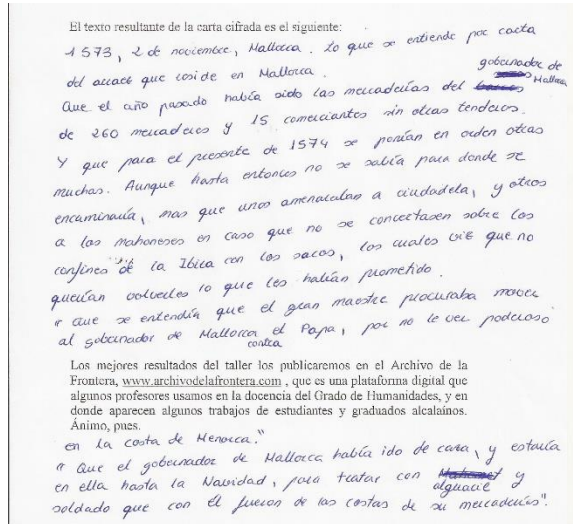 El texto resultante de la carta cifrada es el siguiente:
1573, 2 de noviembre, Mallorca. Lo que se entiende por carta
del que reside en Mallorca.
gobernador de
Que el año pasado había sido las mercaderías del Mallorca
de 260 mercaderos y 15 comerciantes sin otras tenderos.
Y que para el presente de 1574 se ponían en orden otras
muchas. Aunque hasta entonces no se sabía para donde se
encaminaría, mas que unos amenazaban a ciudadela, y otros
a los mahoneses en caso que no se concertasen sobre los
confines de la Ibica con los sacos, los cuales que no
querían volverles lo que les habían prometido.
" Que se entendía que el gran maestre procuraba mover
al gobernador de Mallorca contra el Papa, por no le ver poderoso
Los mejores resultados del taller los publicaremos en el Archivo de la
Frontera, www.archivodelafrontera.com , que es una plataforma digital que
algunos profesores usamos en la docencia del Grado de Humanidades, y en
donde aparecen algunos trabajos de estudiantes y graduados alcalaínos.
Ánimo, pues.
en la costa de Menorca."
" Que el gobernador de Mallorca había ido de caza, y estaría
en ella hasta la Navidad, para tratar con alguacil y
soldado que con él fueron de las costas de su mercaderías".